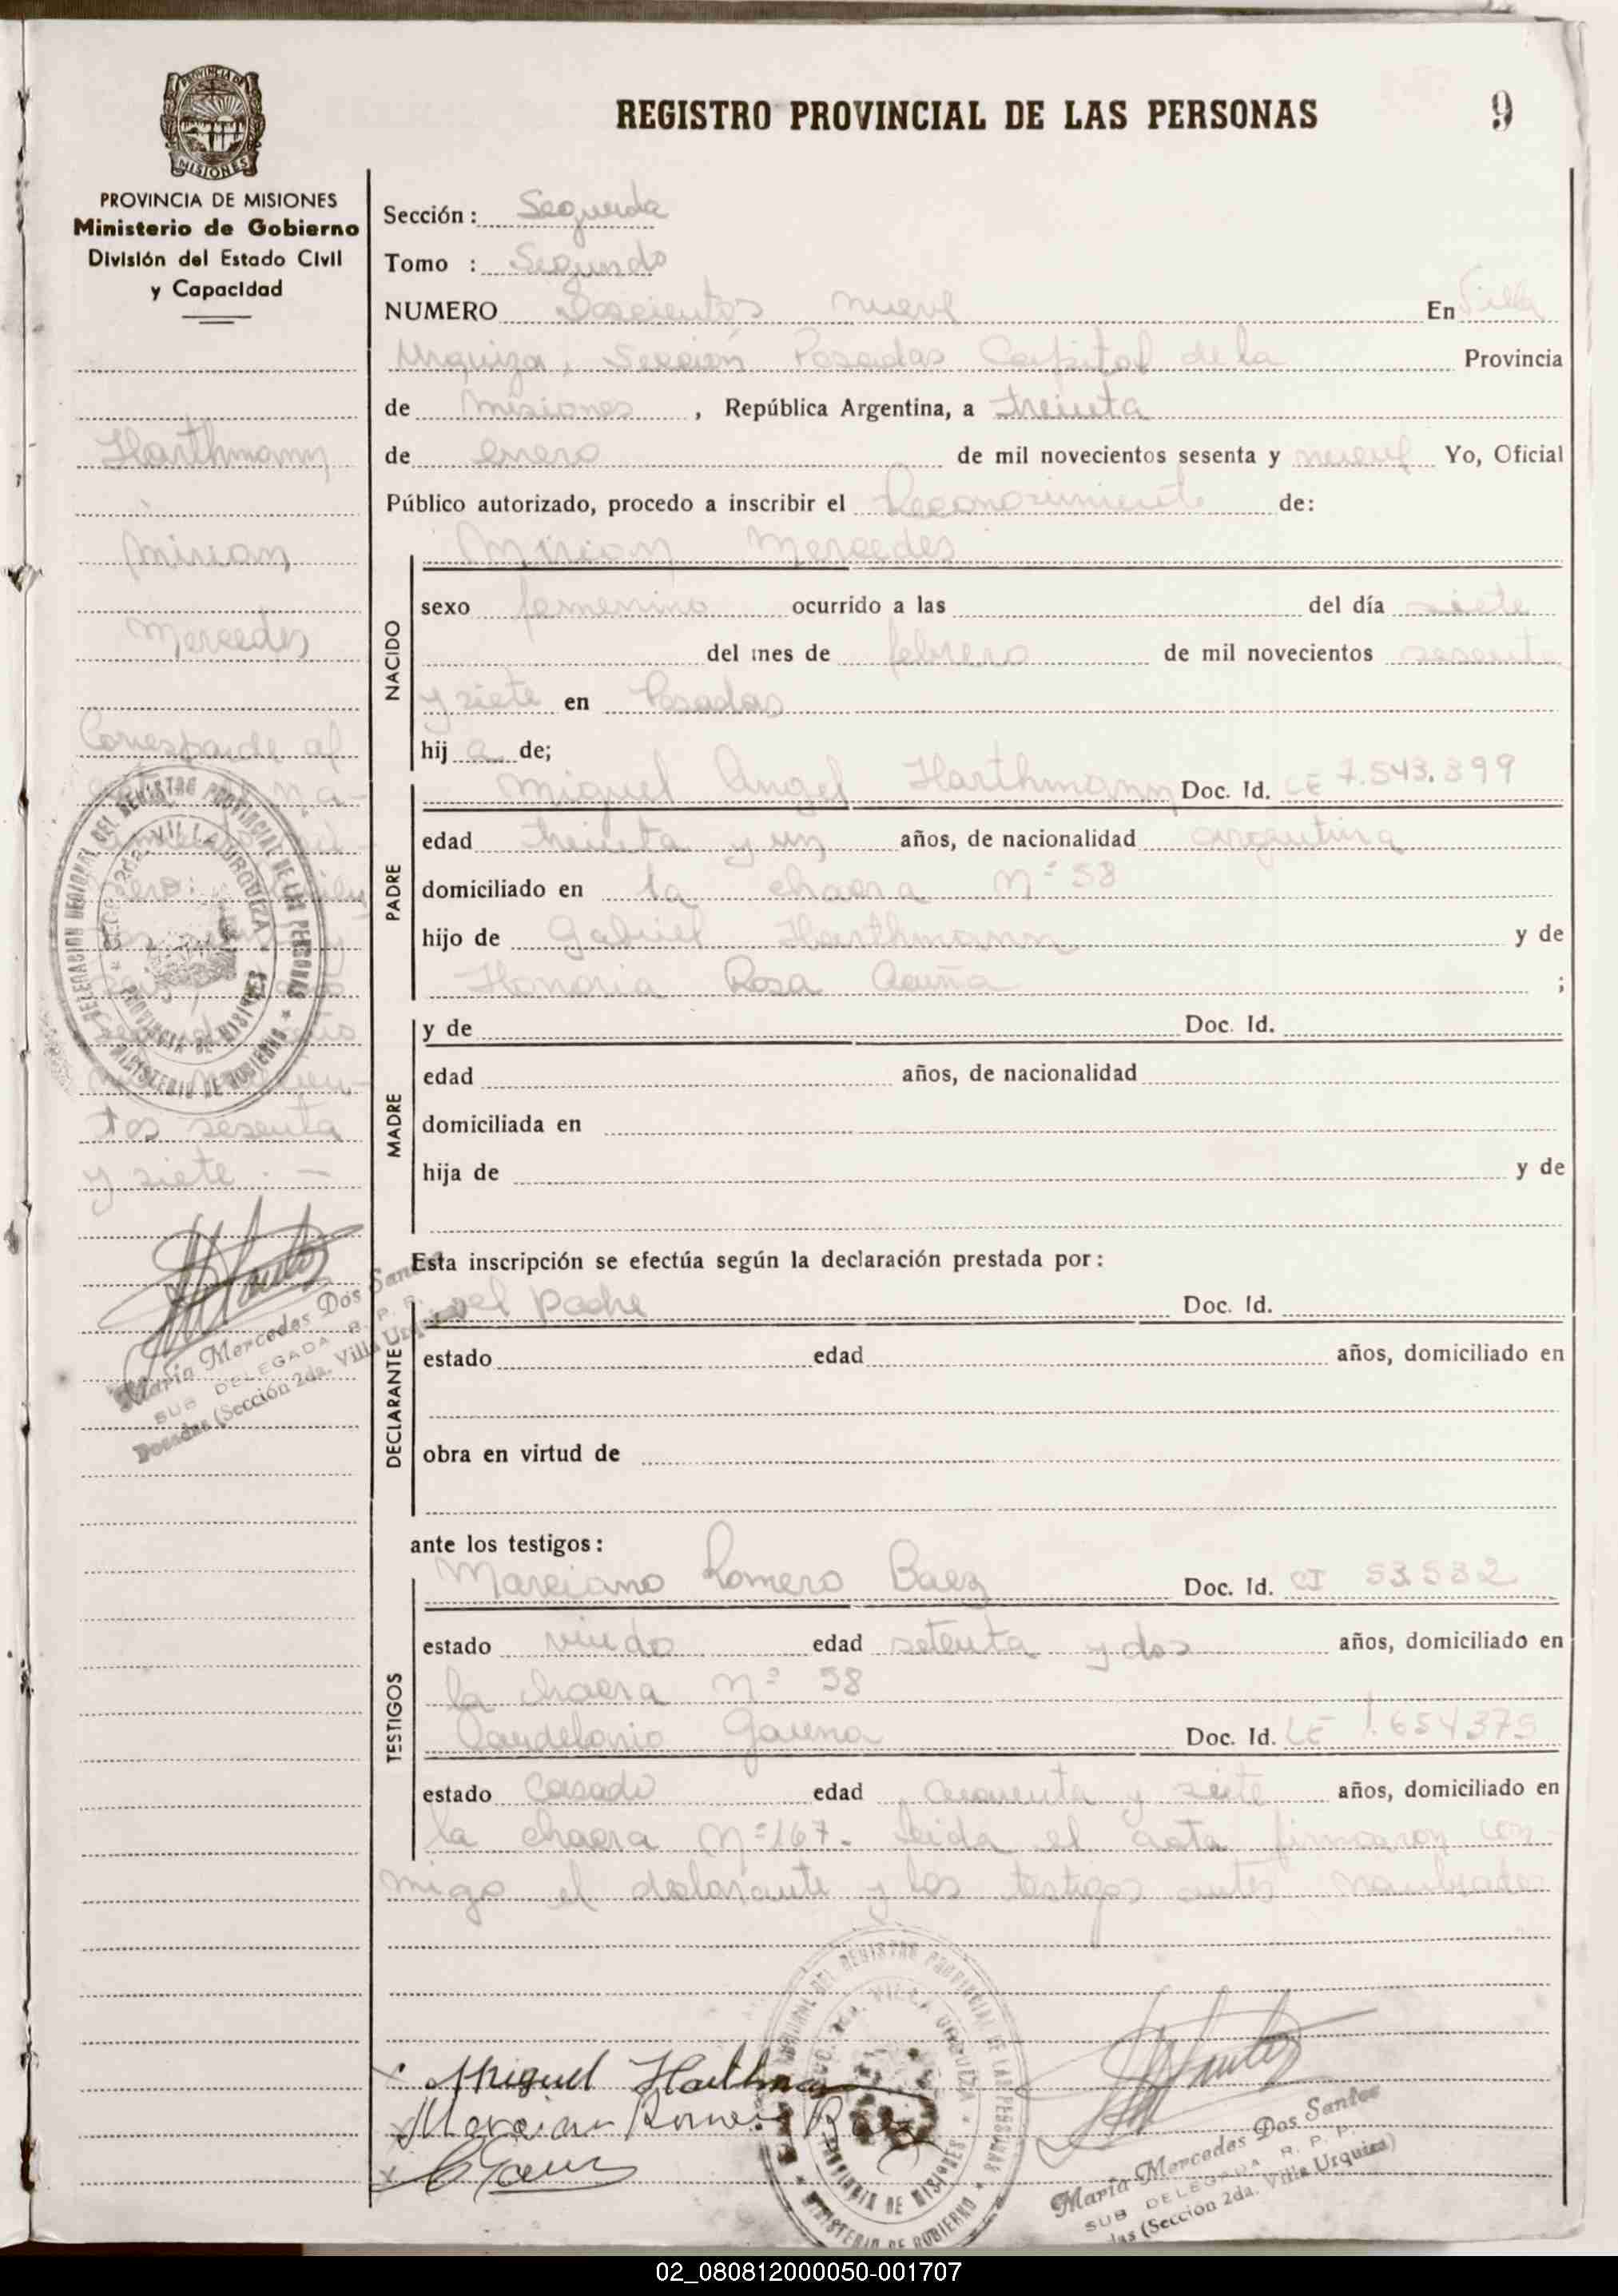 REGISTRO PROVINCIAL DE LAS PERSONAS
9
PROVINCIA DE MISIONES
PROVINCIA DE MISIONES
Ministerio de Gobierno
División del Estado Civil
y Capacidad
Harthmann
Mirian
Mercedes
Corresponde al
tos sesenta
y siete. —
María Mercedes Dos Santos
SUB DELEGADA R. P. P.
Posadas (Sección 2da. Villa Urquiza)
Sección: Segunda
Tomo : Segundo
NUMERO Doscientos nueve En Villa
Urquiza, Sección Posadas Capital de la Provincia
de Misiones, República Argentina, a treinta
de enero de mil novecientos sesenta y nueve Yo, Oficial
Público autorizado, procedo a inscribir el Reconocimiento de:
Mirian Mercedes
NACIDO
sexo femenino ocurrido a las del día siete
del mes de febrero de mil novecientos sesenta
y siete en Posadas
hij a de;
PADRE
Miguel Angel Harthmann Doc. Id. LE 7.543.899
edad treinta y un años, de nacionalidad argentina
domiciliado en la chacra Nº 58
hijo de Gabriel Harthmann y de
Honoria Rosa Acuña ;
MADRE
y de Doc. Id.
edad años, de nacionalidad
domiciliada en
hija de y de
Esta inscripción se efectúa según la declaración prestada por:
DECLARANTE
el padre Doc. Id.
estado edad años, domiciliado en
obra en virtud de
ante los testigos:
TESTIGOS
Marciano Romero Baez Doc. Id. CI 53.532
estado viudo edad setenta y dos años, domiciliado en
la chacra Nº 58
Candelario Gauna Doc. Id. LE 1.654375
estado casado edad cincuenta y siete años, domiciliado en
la chacra Nº 167- Leida el acta firmaron con-
migo el declarante y los testigos antes nombrados
DELEGACION REGIONAL DEL REGISTRO PROVINCIAL DE LAS PERSONAS
VILLA URQUIZA
PROVINCIA DE MISIONES
MINISTERIO DE GOBIERNO
Miguel Harthman
Marciano Romero Baez
María Mercedes Dos Santos
SUB DELEGADA R. P. P.
(Sección 2da. Villa Urquiza)
02_080812000050-001707